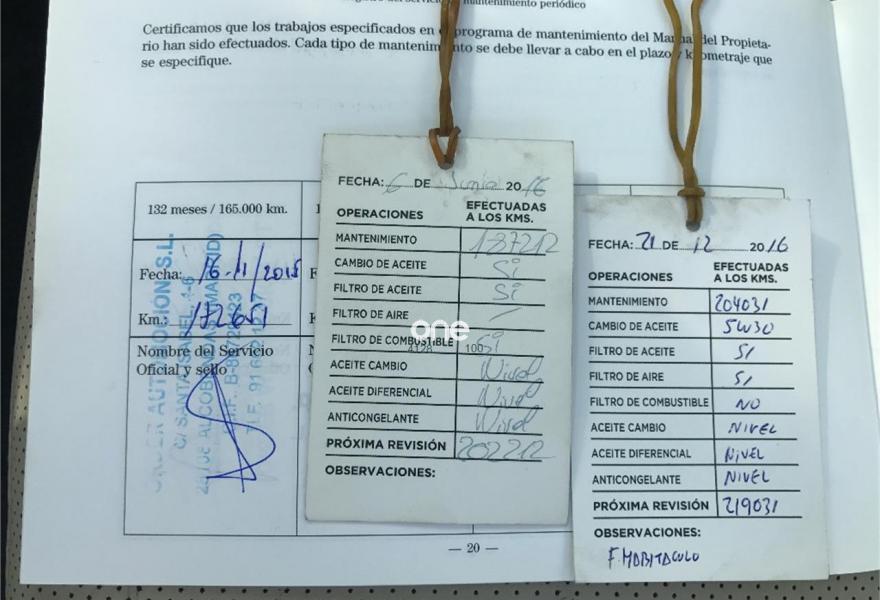 mantenimiento periódico
Certificamos que los trabajos especificados en el programa de mantenimiento del Manual del Propieta-
rio han sido efectuados. Cada tipo de mantenimiento se debe llevar a cabo en el plazo y kilometraje que
se especifique.
132 meses / 165.000 km.
Fecha: 16-11/2015
Km.: 172651
Nombre del Servicio
Oficial y sello
AUTOMOCIÓN, S.L.
C/ SANTA ISABEL, 1-6
FECHA: 6 DE Junio 2016
OPERACIONES EFECTUADAS A LOS KMS.
MANTENIMIENTO 187212
CAMBIO DE ACEITE Si
FILTRO DE ACEITE Si
FILTRO DE AIRE /
FILTRO DE COMBUSTIBLE Si
ACEITE CAMBIO Nivel
ACEITE DIFERENCIAL Nivel
ANTICONGELANTE Nivel
PRÓXIMA REVISIÓN 202212
OBSERVACIONES:
one
4128 100
FECHA: 21 DE 12 2016
OPERACIONES EFECTUADAS A LOS KMS.
MANTENIMIENTO 204031
CAMBIO DE ACEITE 5W30
FILTRO DE ACEITE SI
FILTRO DE AIRE SI
FILTRO DE COMBUSTIBLE NO
ACEITE CAMBIO NIVEL
ACEITE DIFERENCIAL NIVEL
ANTICONGELANTE NIVEL
PRÓXIMA REVISIÓN 219031
OBSERVACIONES:
F. HABITACULO
— 20 —